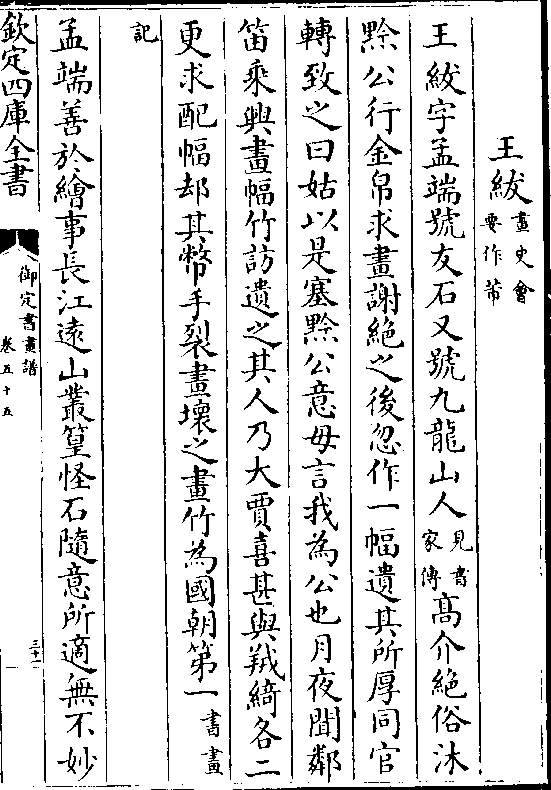 王紱畫史會要作芾
王紱字孟端號友石又號九龍山人見書家傳高介絶俗沐
黔公行金帛求畫謝絶之後忽作一幅遺其所厚同官
轉致之曰姑以是塞黔公意毋言我為公也月夜聞鄰
笛乘興畫幅竹訪遺之其人乃大賈喜甚與羢綺各二
更求配幅却其幣手裂畫壞之畫竹為國朝第一書畫
記
孟端善於繪事長江遠山叢篁怪石隨意所適無不妙
欽定四庫全書
御定書畫譜
卷五十五
三十一